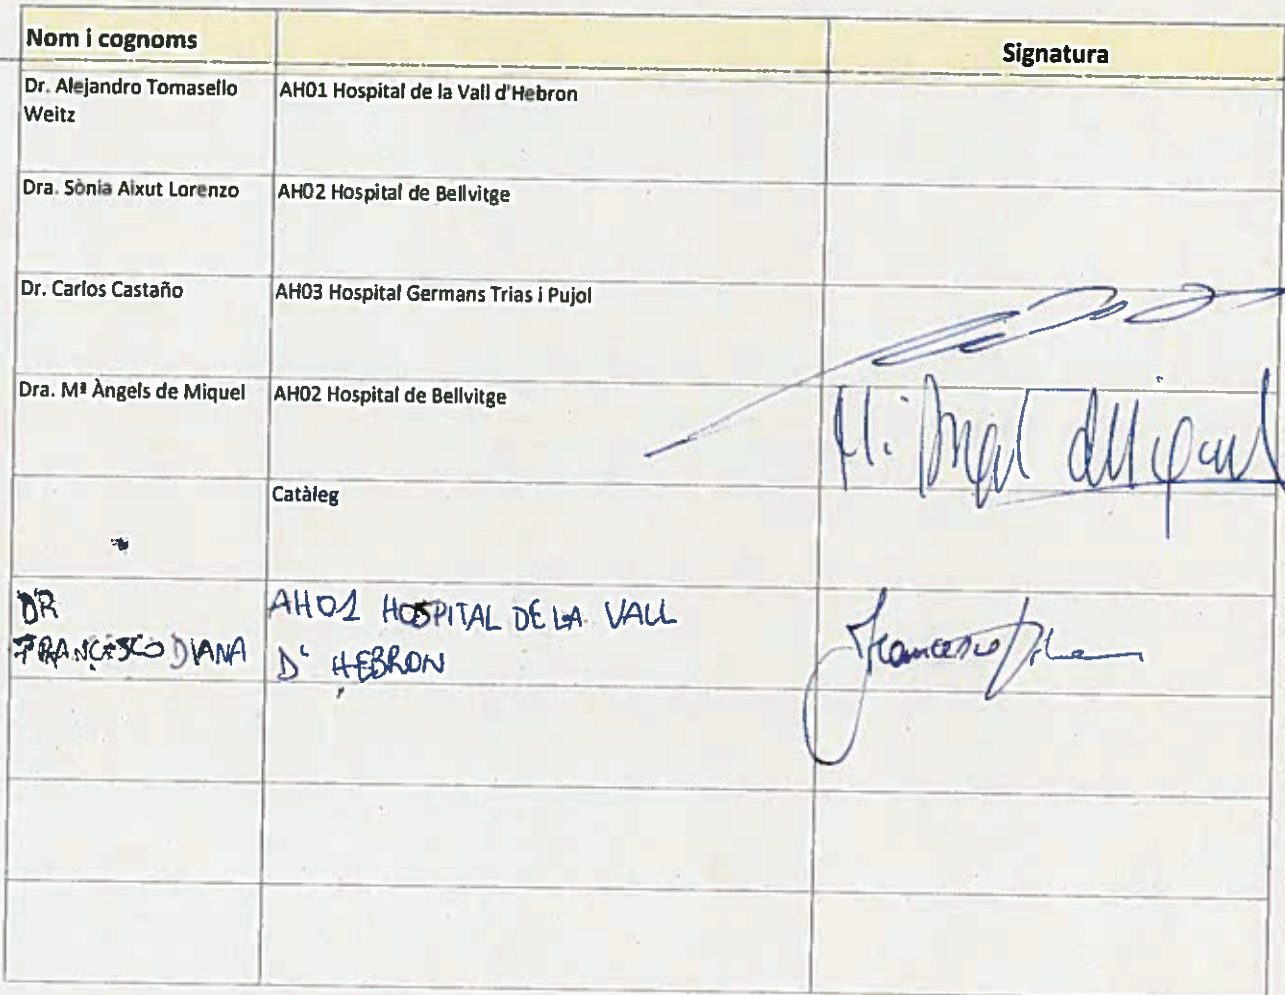 Nom i cognoms
Signatura
Dr. Alejandro Tomasello
Weitz
AH01 Hospital de la Vall d'Hebron
Dra. Sònia Aixut Lorenzo
AH02 Hospital de Bellvitge
Dr. Carlos Castaño
AH03 Hospital Germans Trias i Pujol
Dra. Mª Àngels de Miquel
AH02 Hospital de Bellvitge
Catàleg
DR
FRANCESCO DIANA
AH01 HOSPITAL DE LA VALL
D' HEBRON
Francesco Diana